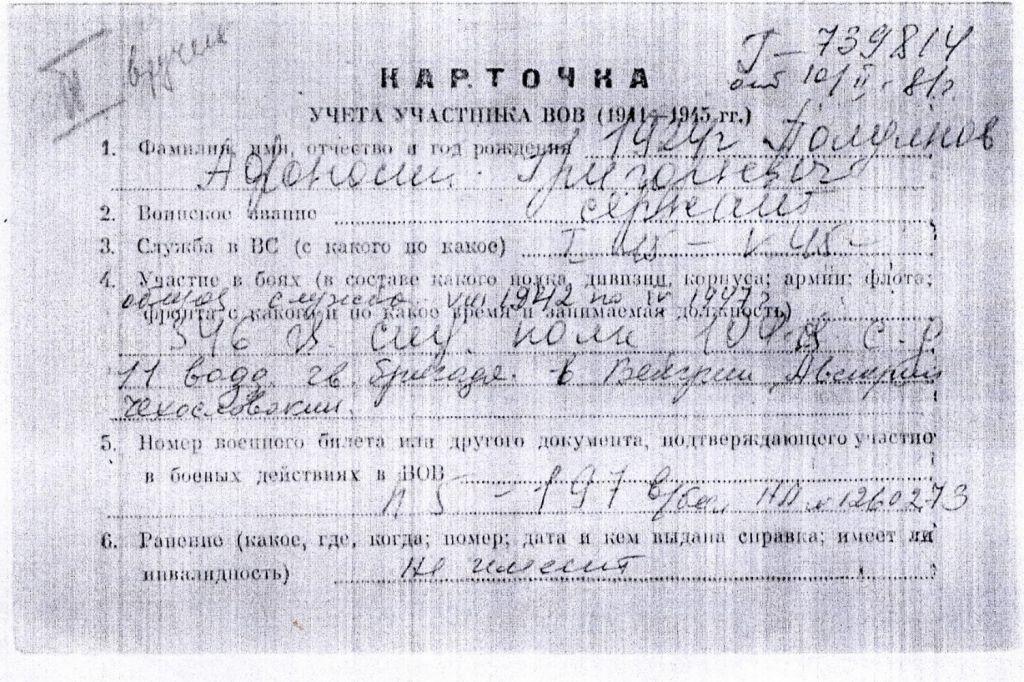 вручен
Г-739814
от 10/II-81г.
КАРТОЧКА
УЧЕТА УЧАСТНИКА ВОВ (1941—1945 гг.)
1. Фамилия, имя, отчество и год рождения 1924г
Григорьевич
2. Воинское звание сержант
3. Служба в ВС (с какого по какое) I 45 - V 45 -
4. Участие в боях (в составе какого полка, дивизии, корпуса; армии; флота;
общая служба VIII 1942 по IV 1947г
фронта с какого и по какое время и занимаемая должность)
полк
11 гв. бригада. в Венгрии, Австрии
Чехословакии.
5. Номер военного билета или другого документа, подтверждающего участие
в боевых действиях в ВОВ
6. Ранение (какое, где, когда; номер; дата и кем выдана справка; имеет ли
инвалидность) не имеет